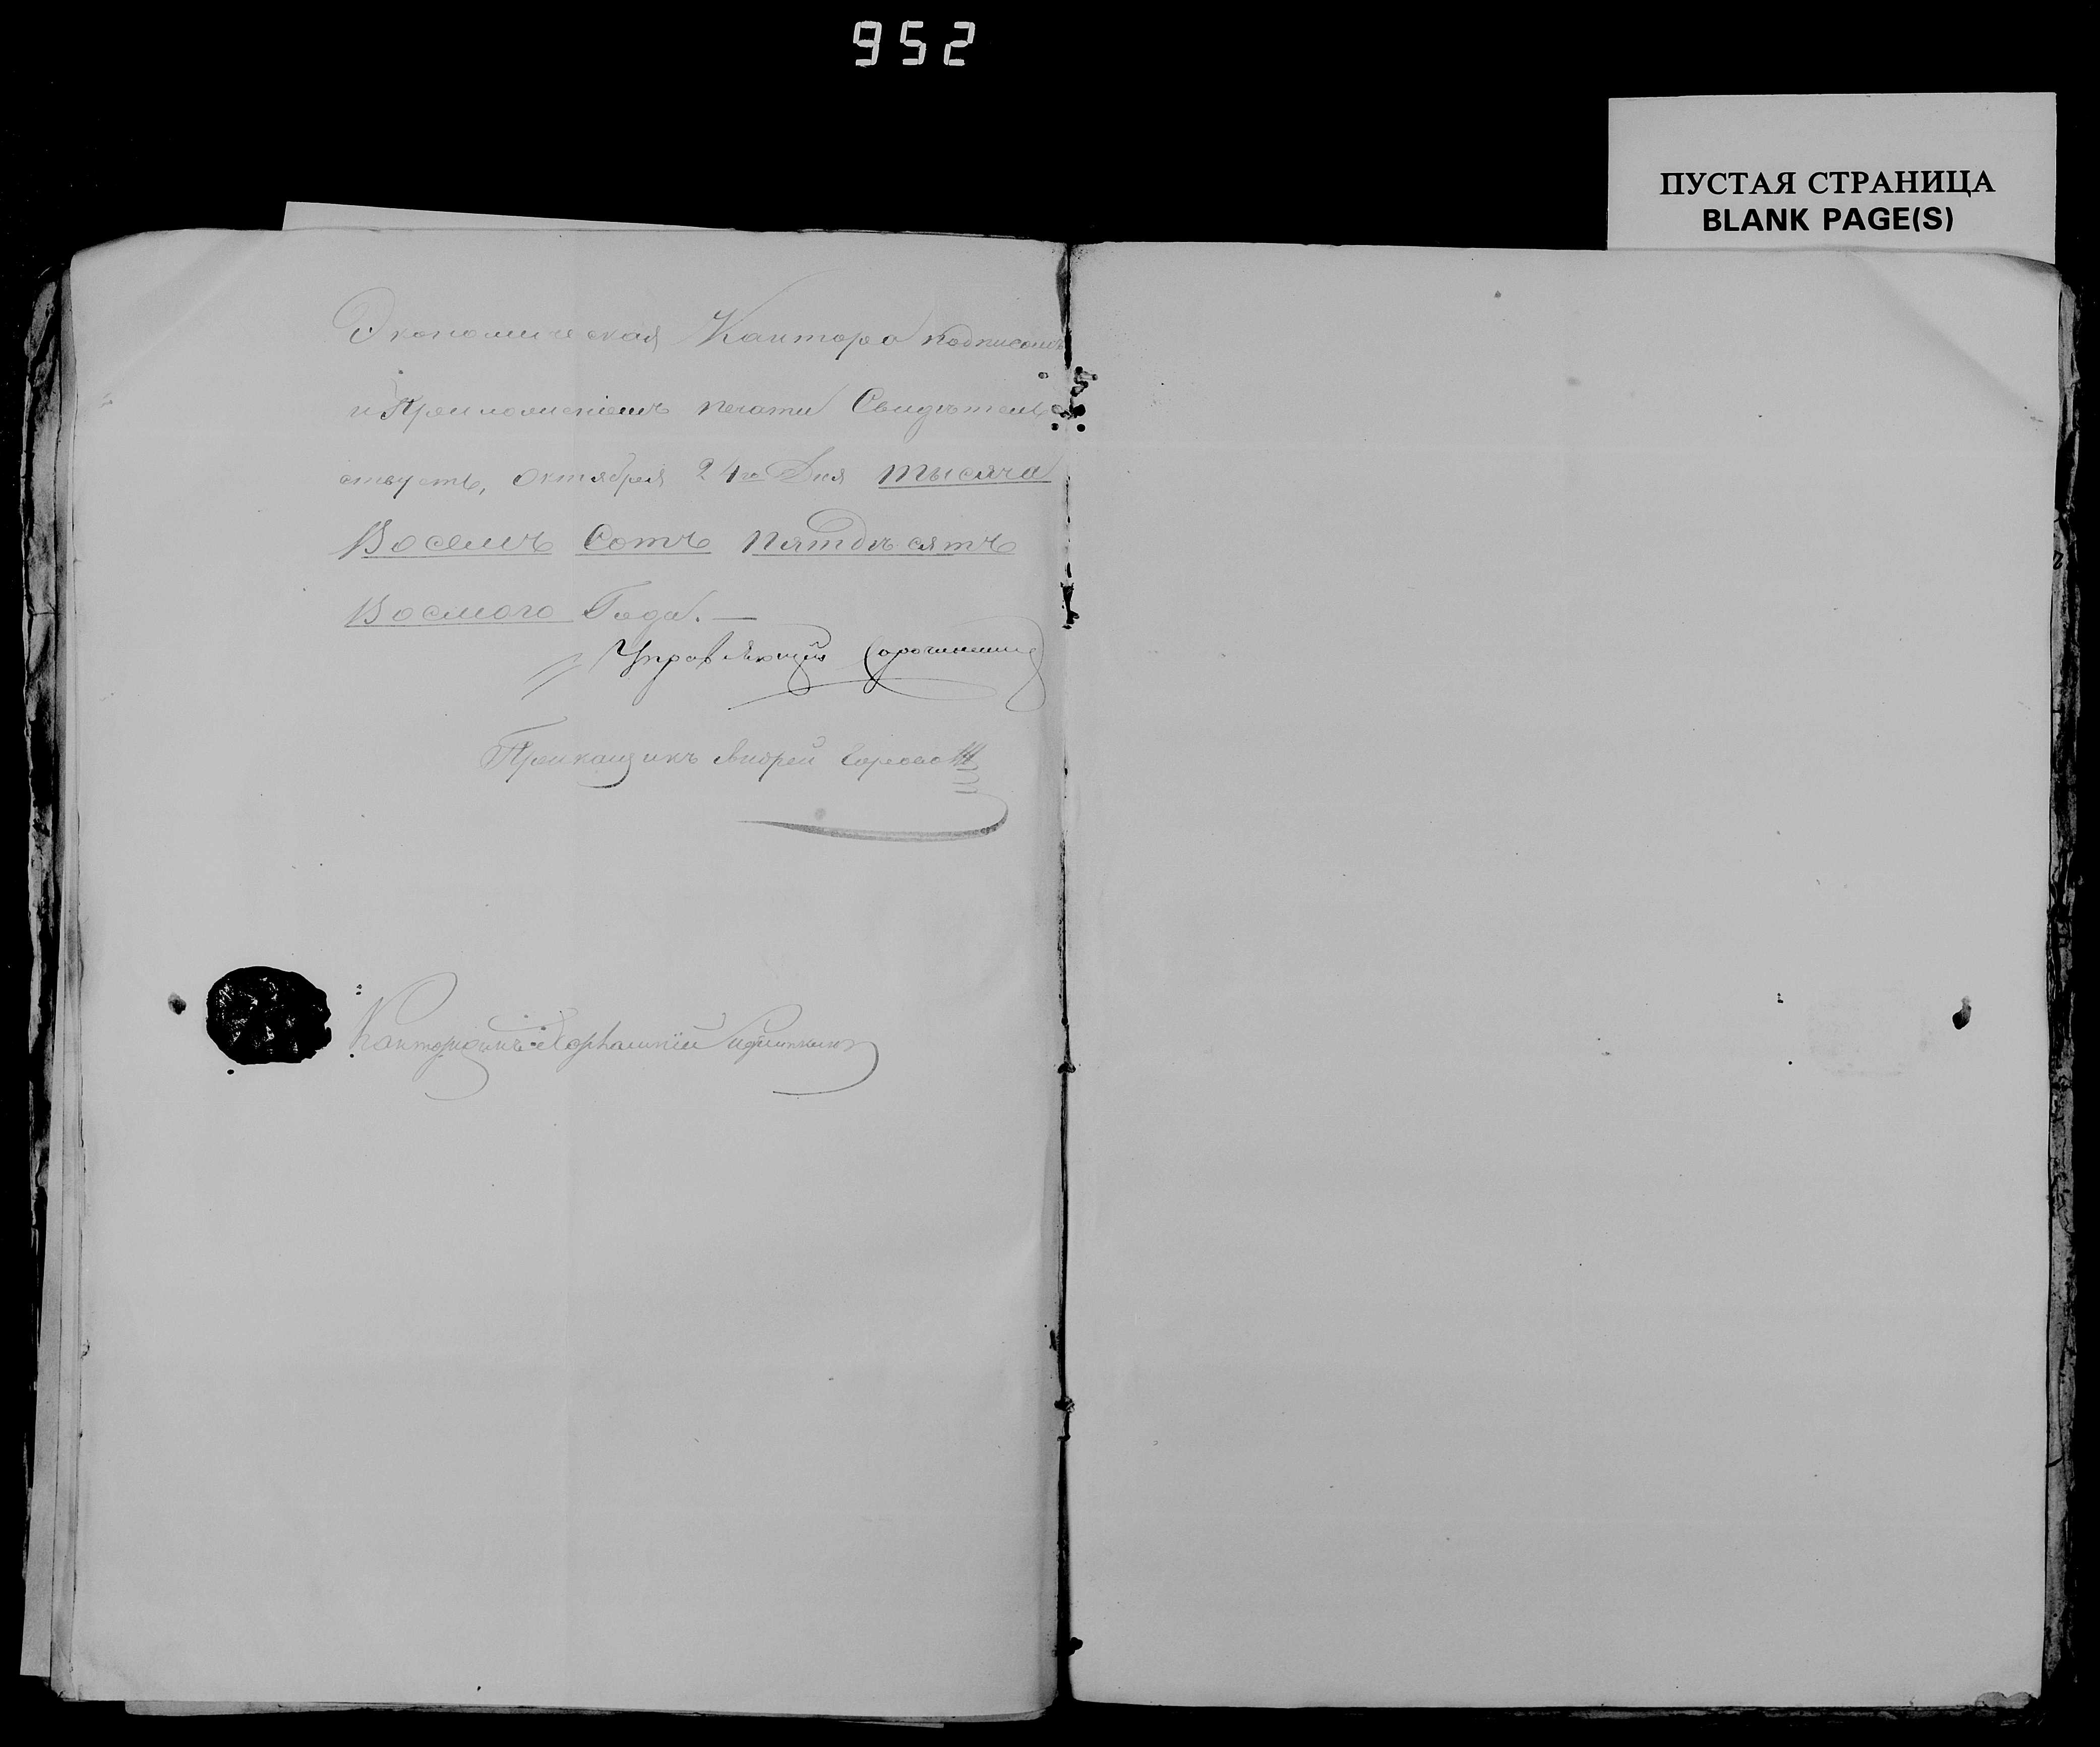 952
ПУСТАЯ СТРАНИЦА
BLANK PAGE(S)
Экономическая Кантора подписомъ
и Приложениемъ печати Свидѣтель
ствуетъ, октября 24го Дня тысяча
Восемъ Сотъ пятдѣсятъ
Восмого Года. —
Управляющій
Прикащикъ Андрей
Канторщикъ